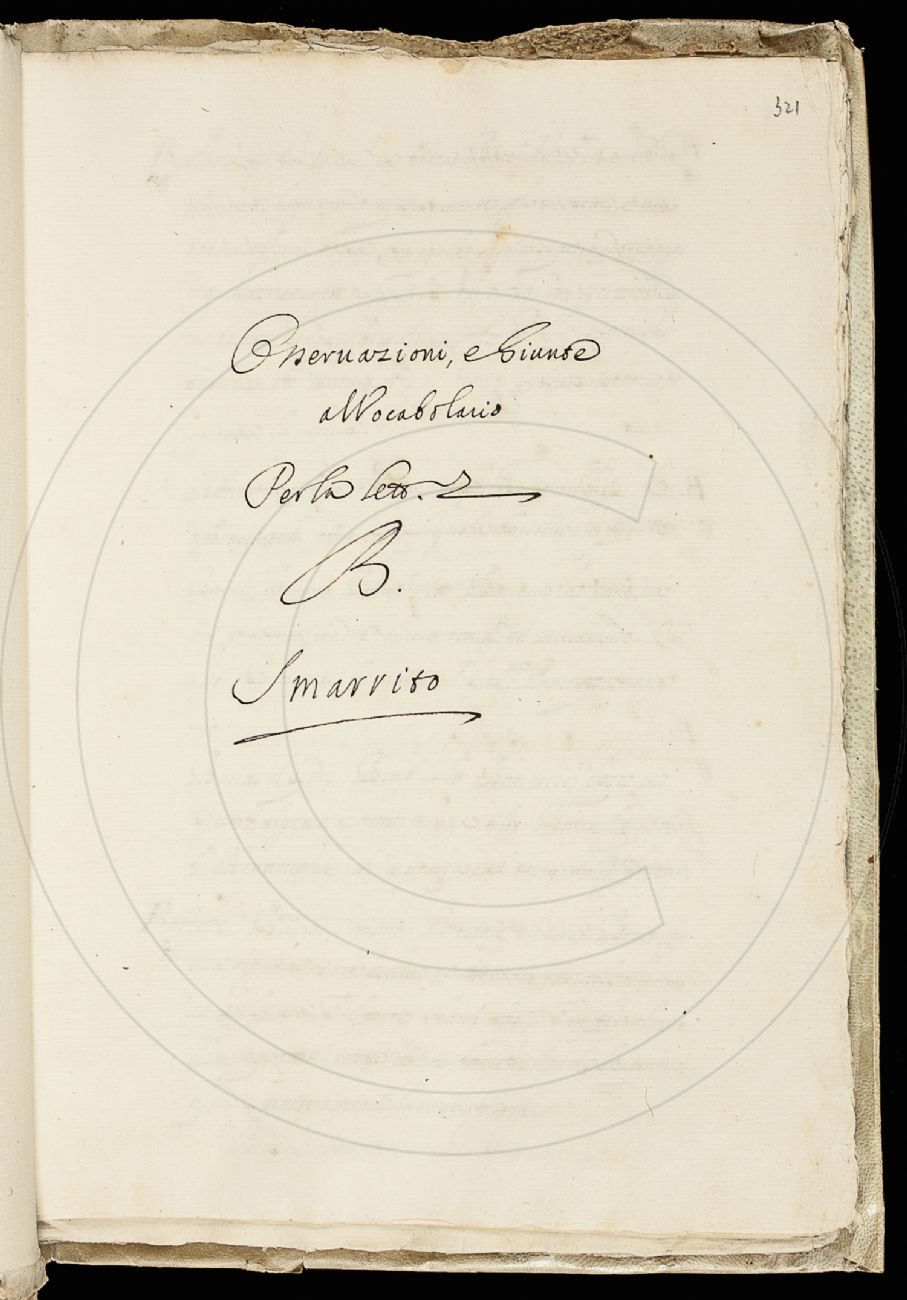 321
Osseruazioni, e Giunte
al Vocabolario
Per la Lett.
B.
Smarrito